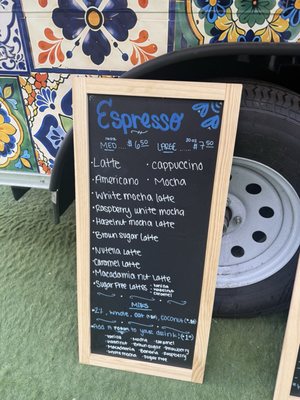 Espresso
MED $6.50 LARGE $7.50
· Latte · cappuccino
· Americano · Mocha
· White mocha latte
· Raspberry white mocha
· Hazelnut mocha Latte
· Brown sugar Latte
· Nutella Latte
· Caramel Latte
· Macadamia nut Latte
· Sugar free Lattes : · Vanilla
· Hazelnut
· Caramel
MILKS
Whole, oat Coconut
Add to your drink!
· Vanilla · Mocha · Caramel
· Hazelnut · Brown sugar · Strawberry
· Macadamia · Banana · Raspberry
· White mocha · Sugar free